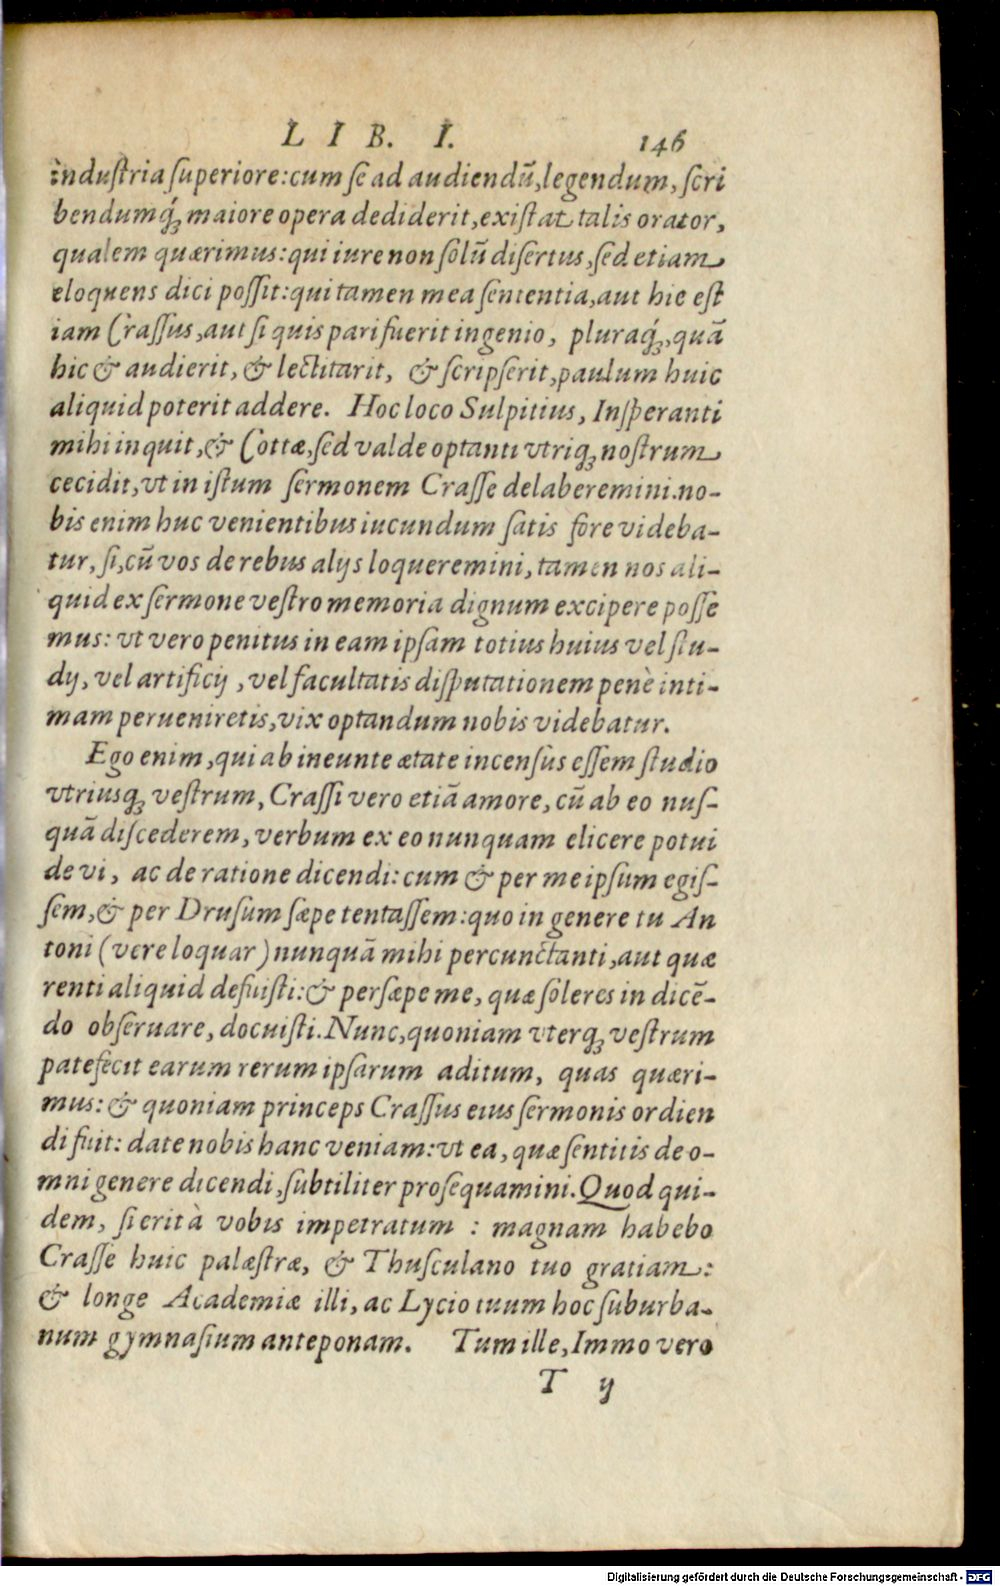 LIB. I. 146
industria ſuperiore: cum ſe ad audiendũ, legendum, ſcri
bendumq́ꝫ maiore opera dediderit, exiſtat talis orator,
qualem quærimus: qui iure non ſolũ diſertus, ſed etiam
eloquens dici poſſit: qui tamen mea ſententia, aut hic eſt
iam Craſſus, aut ſi quis pari fuerit ingenio, pluraq́ꝫ, quã
hic & audierit, & lectitarit, & ſcripſerit, paulum huic
aliquid poterit addere. Hoc loco Sulpitius, Inſperanti
mihi inquit, & Cottæ, ſed valde optanti vtriqꝫ noſtrum
cecidit, vt in iſtum ſermonem Craſſe delaberemini. no-
bis enim huc venientibus iucundum ſatis fore videba-
tur, ſi, cũ vos de rebus alijs loqueremini, tamen nos ali-
quid ex ſermone veſtro memoria dignum excipere poſſe
mus: vt vero penitus in eam ipſam totius huius vel ſtu-
dij, vel artificij, vel facultatis diſputationem penè inti-
mam perueniretis, vix optandum nobis videbatur.
Ego enim, qui ab ineunte ætate incenſus eſſem ſtudio
vtriusqꝫ veſtrum, Craſſi vero etiã amore, cũ ab eo nuſ-
quã diſcederem, verbum ex eo nunquam elicere potui
de vi, ac de ratione dicendi: cum & per me ipſum egiſ-
ſem, & per Druſum ſæpe tentaſſem: quo in genere tu An
toni (vere loquar) nunquã mihi percunctanti, aut quæ
renti aliquid defuiſti: & perſæpe me, quæ ſoleres in dicẽ-
do obſeruare, docuiſti. Nunc, quoniam vterqꝫ veſtrum
patefecit earum rerum ipſarum aditum, quas quæri-
mus: & quoniam princeps Craſſus eius ſermonis ordien
di fuit: date nobis hanc veniam: vt ea, quæ ſentitis de o-
mni genere dicendi, ſubtiliter proſequamini. Quod qui-
dem, ſi erit à vobis impetratum : magnam habebo
Craſſe huic palæſtræ, & Thuſculano tuo gratiam:
& longe Academiæ illi, ac Lycio tuum hoc ſuburba-
num gymnaſium anteponam. Tum ille, Immo vero
T ij
Digitalisierung gefördert durch die Deutsche Forschungsgemeinschaft - DFG